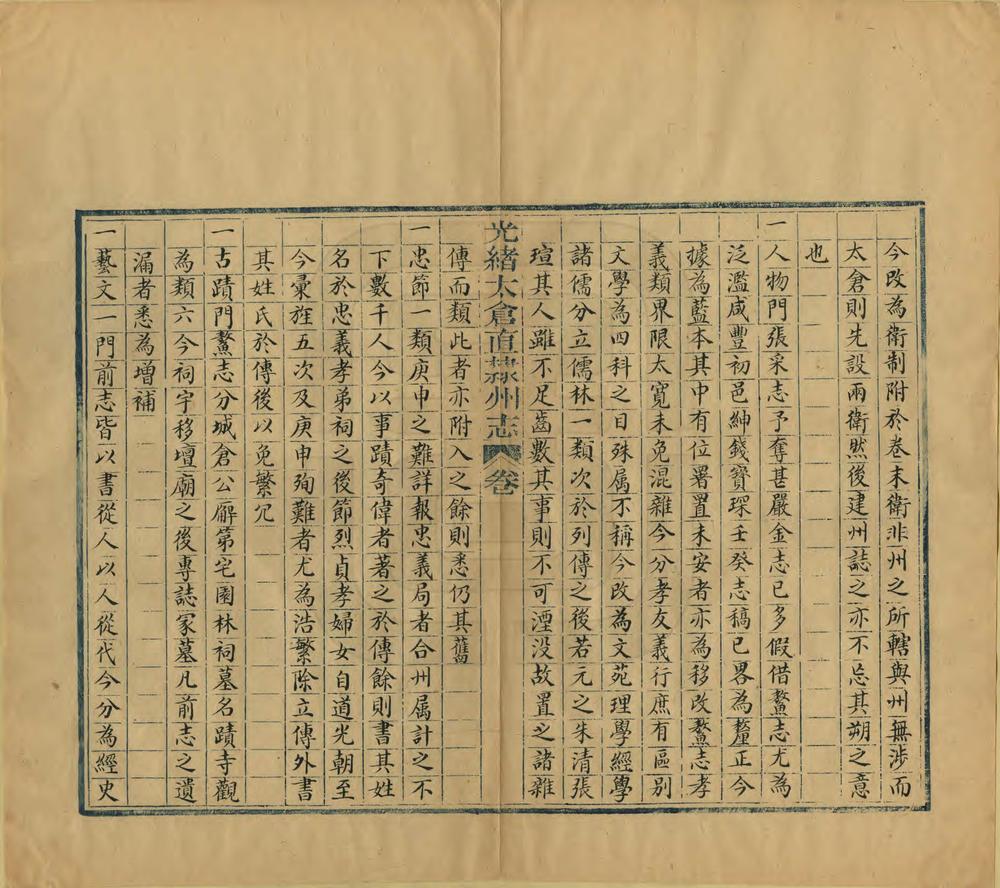 今改為衛制附於卷末衛非州之所轄與州無涉而
太倉則先設兩衛然後建州誌之亦不忘其朔之意
也
一人物門張采志予奪甚嚴金志已多假借鰲志尤為
泛濫咸豐初邑紳錢寶琛壬癸志稿已畧為釐正今
據為藍本其中有位署置未安者亦為移改鰲志孝
義類界限太寬未免混雜今分孝友義行庶有區別
文學為四科之目殊属不稱今改為文苑理學經學
諸儒分立儒林一類次於列傳之後若元之朱清張
瑄其人雖不足齒數其事則不可湮没故置之諸雜
光緒太倉直隸州志 卷
傳而類此者亦附入之餘則悉仍其舊
一忠節一類庚申之難詳報忠義局者合州属計之不
下數千人今以事蹟奇偉者著之於傳餘則書其姓
名於忠義孝弟祠之後節烈貞孝婦女自道光朝至
今彙旌五次及庚申殉難者尤為浩繁除立傳外書
其姓氏於傳後以免繁冗
一古蹟門鰲志分城倉公廨第宅園林祠墓名蹟寺觀
為類六今祠宇移壇廟之後專誌冢墓凡前志之遺
漏者悉為增補
一藝文一門前志皆以書從人以人從代今分為經史